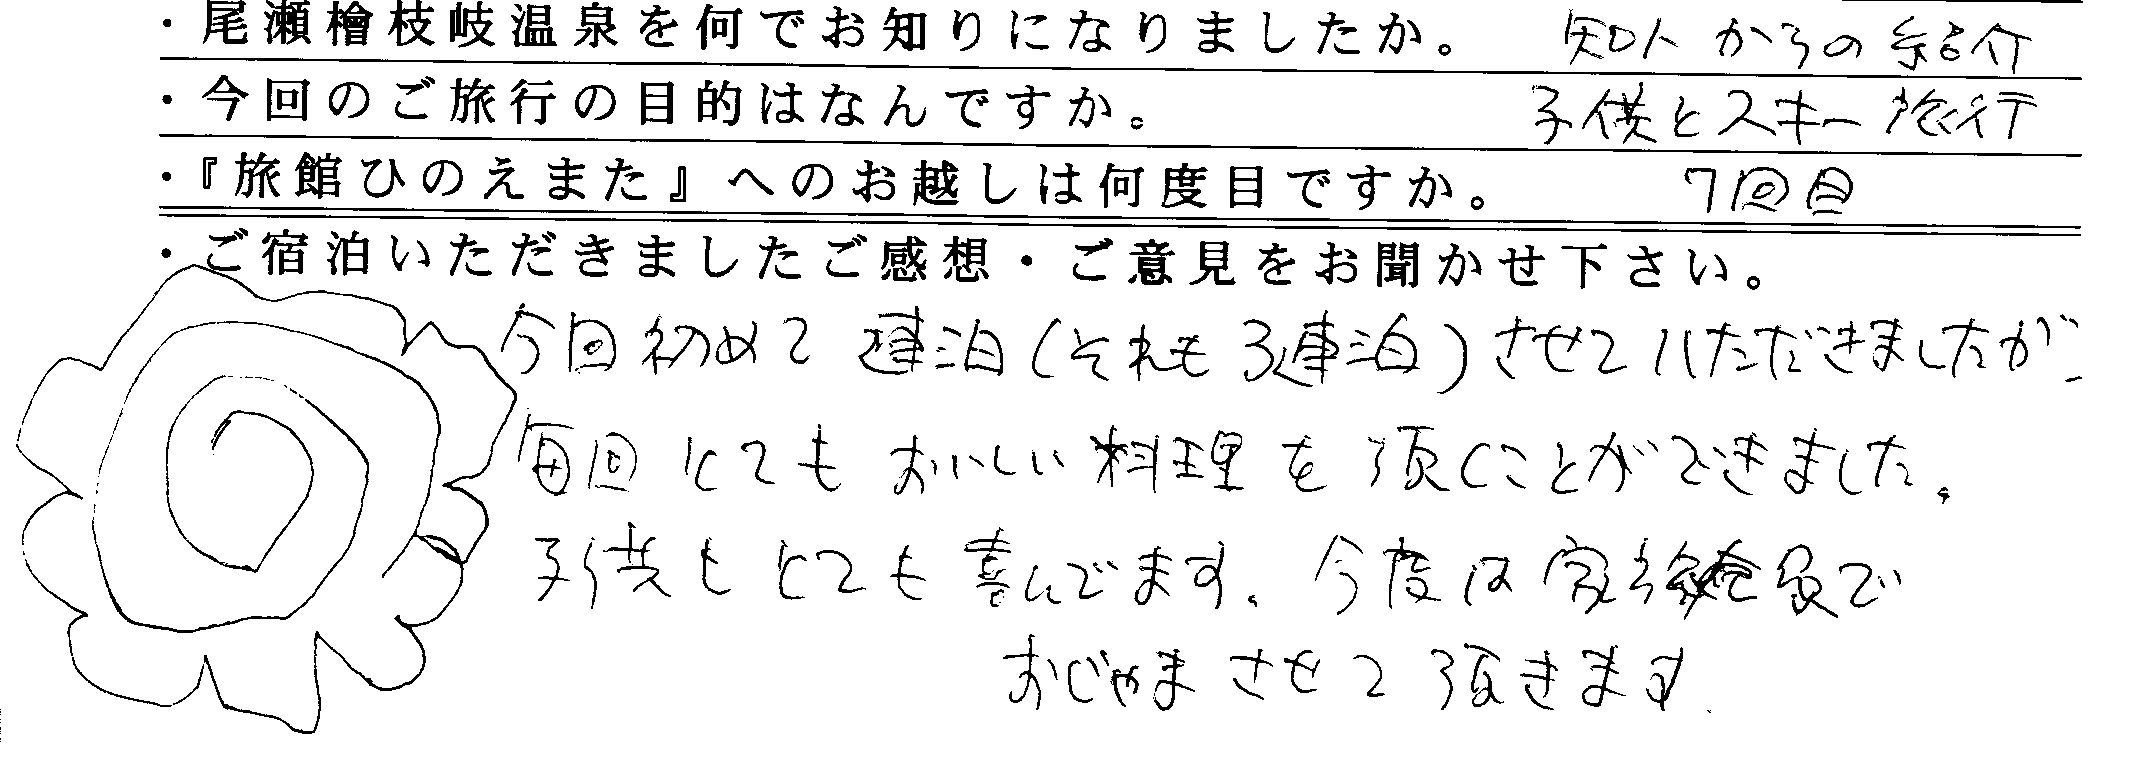 ・尾瀬檜枝岐温泉を何でお知りになりましたか。 知人からの紹介
・今回のご旅行の目的はなんですか。 子供とスキー旅行
・『旅館ひのえまた』へのお越しは何度目ですか。 7回目
・ご宿泊いただきましたご感想・ご意見をお聞かせ下さい。
今回初めて連泊(それも3連泊)させていただきましたが、
毎回とてもおいしい料理を頂くことができました。
子供もとても喜んでます。今度は家族全員で
おじゃまさせて頂きます